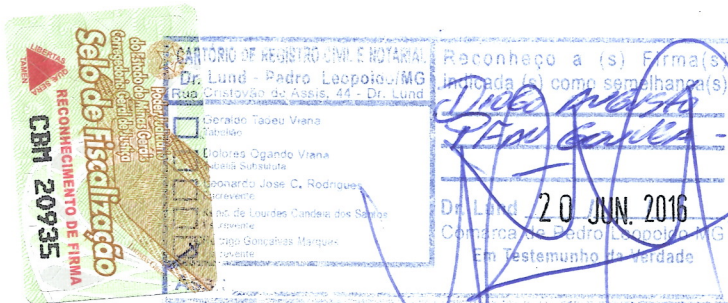 LIBERTAS QUAE SERA TAMEN
Poder Judiciário
do Estado de Minas Gerais
Corregedoria Geral de Justiça
Selo de Fiscalização
RECONHECIMENTO DE FIRMA
CBM 20935
CARTÓRIO DE REGISTRO CIVIL E NOTARIAL
Dr. Lund - Pedro Leopoldo/MG
Rua Cristovão de Assis, 44 - Dr. Lund
Geraldo Tadeu Viana
Tabelião
Dolores Ogando Viana
Tabeliã Substituta
Leonardo Jose C. Rodrigues
Escrevente
de Lourdes Candeia dos Santos
Escrevente
Rodrigo Goncalves Marques
Escrevente
Reconheço a (s) Firma(s)
indicada (s) como semelhança(s)
DIOGO AUGUSTO
Dr. Lund 20 JUN. 2016
Comarca de Pedro Leopoldo-MG
Em Testemunho da Verdade